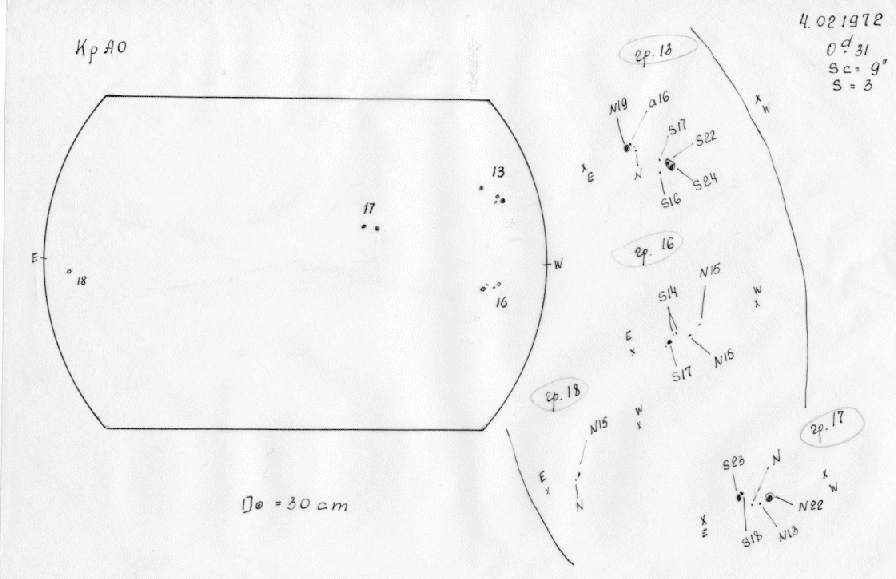 КрАО
4.02 1972
0d.31
Sc = 9"
S = 3
E
W
13
17
18
16
D⊙ = 30 cm
гр. 13
N19
a16
S17
S22
E
N
S16
S24
W
гр. 16
N15
S14
W
E
S17
N15
гр. 18
N15
W
E
N
гр. 17
S23
N
W
N22
E
S18
N13